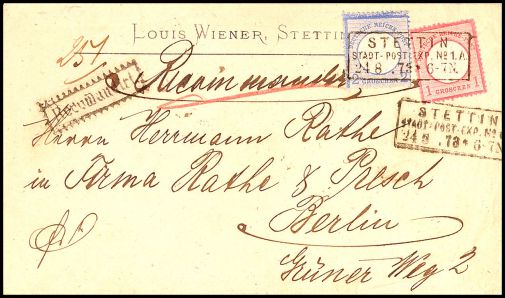 LOUIS WIENER, STETTIN
251
Recommandirt
STETTIN
STADT-POST-EXP. No 1.A.
24 8 73 * 6-7N.
2 GROSCHEN 2
1 GROSCHEN 1
STETTIN
STADT-POST-EXP. No
24 8 .73 * 6-7N
Herrn Herrmann Rathe
in Firma Rathe &
Berlin
Grüner Weg 2